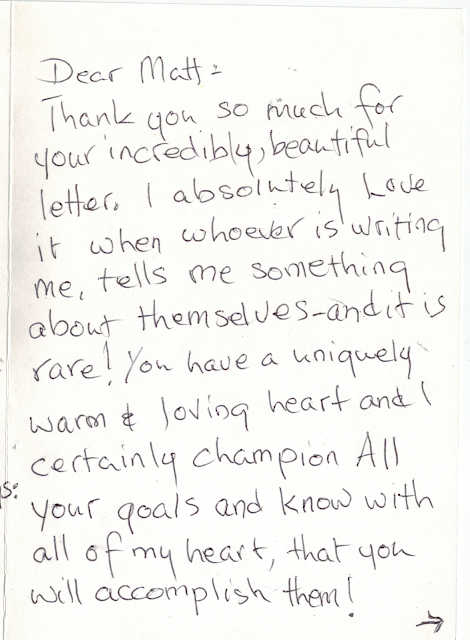 Dear Matt:
Thank you so much for
your incredibly, beautiful
letter. I absolutely Love
it when whoever is writing
me, tells me something
about themselves-and it is
rare! You have a uniquely
warm & loving heart and I
certainly champion All
your goals and know with
all of my heart, that you
will accomplish them!
→